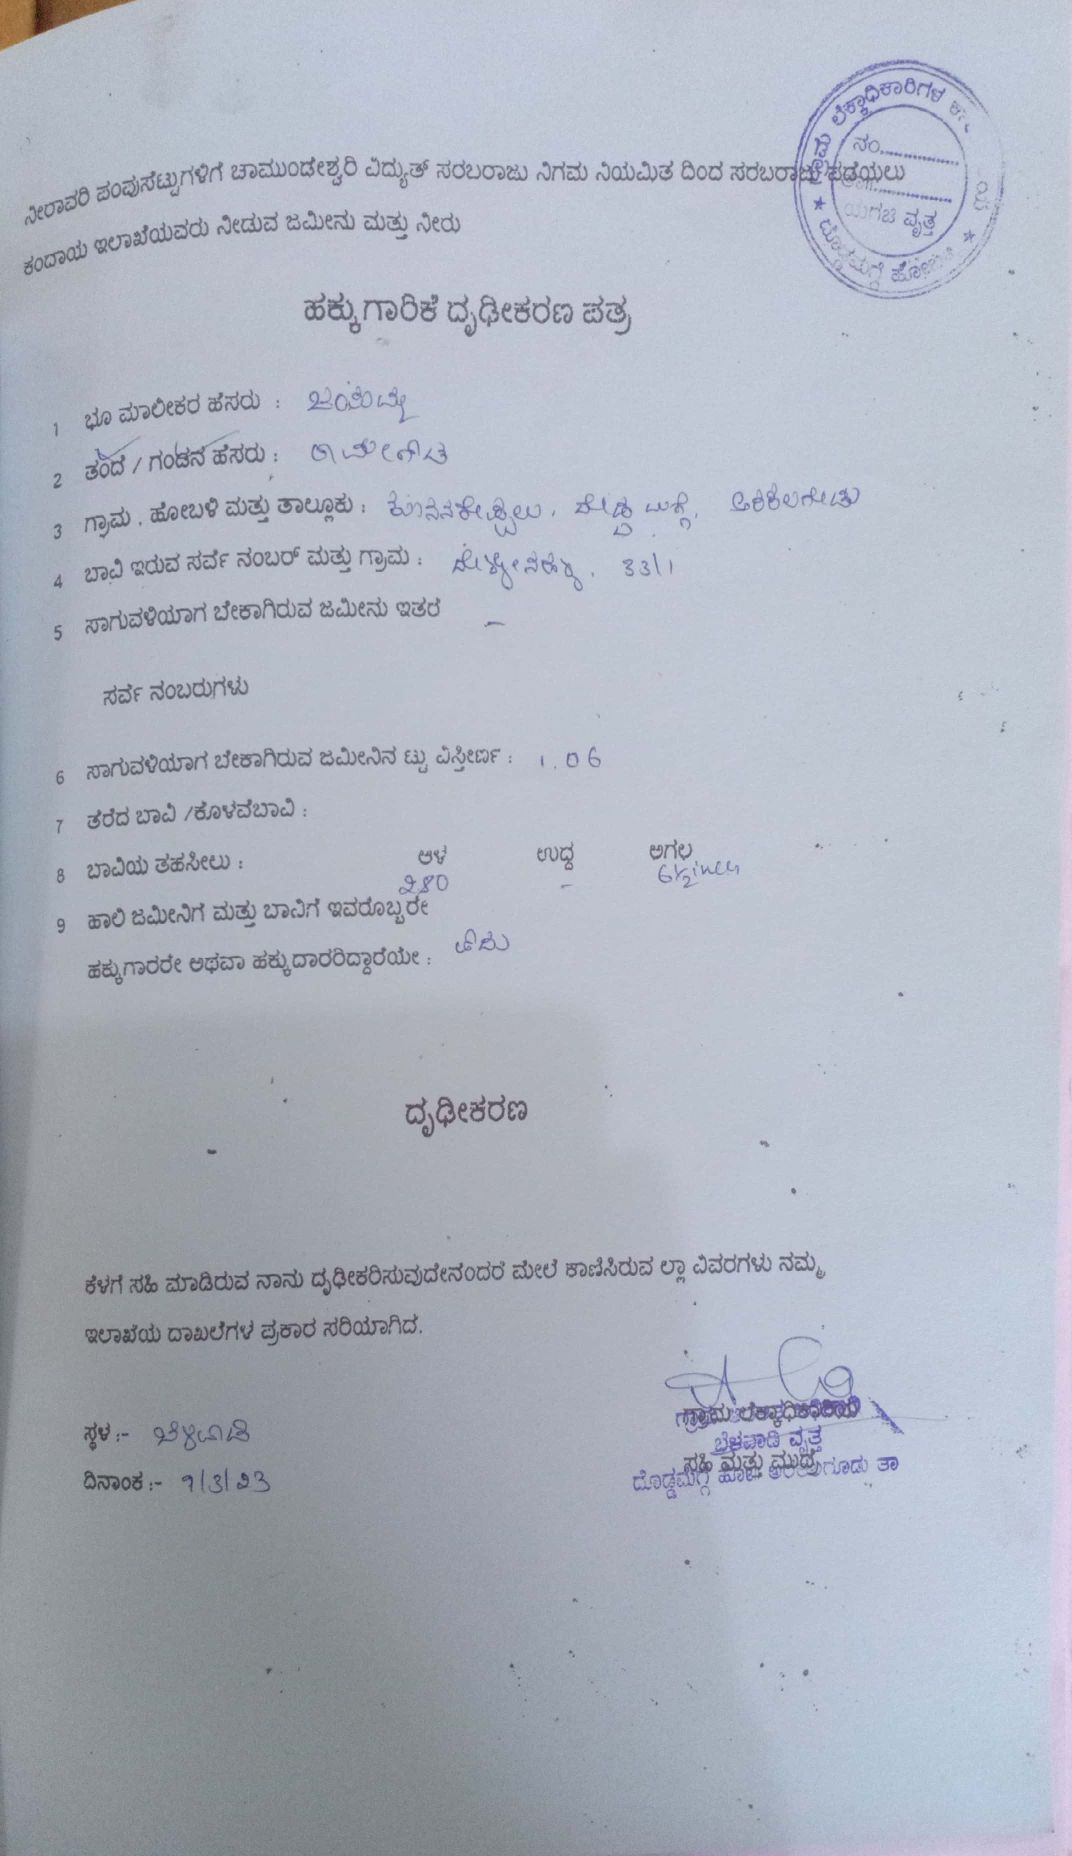 ಗ್ರಾಮ ಲೆಕ್ಕಾಧಿಕಾರಿಗಳ
ನಂ..............
ವೃತ್ತ
★ ದೊಡ್ಡಮಗ್ಗೆ ಹೋಬಳಿ ★
ನೀರಾವರಿ ಪಂಪುಸೆಟ್ಟುಗಳಿಗೆ ಚಾಮುಂಡೇಶ್ವರಿ ವಿದ್ಯುತ್ ಸರಬರಾಜು ನಿಗಮ ನಿಯಮಿತ ದಿಂದ ಸರಬರಾಜು ಪಡೆಯಲು
ಕಂದಾಯ ಇಲಾಖೆಯವರು ನೀಡುವ ಜಮೀನು ಮತ್ತು ನೀರು
ಹಕ್ಕುಗಾರಿಕೆ ದೃಢೀಕರಣ ಪತ್ರ
1 ಭೂ ಮಾಲೀಕರ ಹೆಸರು :
2 ತಂದೆ / ಗಂಡನ ಹೆಸರು :
3 ಗ್ರಾಮ , ಹೋಬಳಿ ಮತ್ತು ತಾಲ್ಲೂಕು : ದೊಡ್ಡಮಗ್ಗೆ, ಅರಕಲಗೂಡು
4 ಬಾವಿ ಇರುವ ಸರ್ವೆ ನಂಬರ್ ಮತ್ತು ಗ್ರಾಮ : 33/1
5 ಸಾಗುವಳಿಯಾಗ ಬೇಕಾಗಿರುವ ಜಮೀನು ಇತರೆ –
ಸರ್ವೆ ನಂಬರುಗಳು
6 ಸಾಗುವಳಿಯಾಗ ಬೇಕಾಗಿರುವ ಜಮೀನಿನ ಟ್ಟು ವಿಸ್ತೀರ್ಣ : 1.06
7 ತೆರೆದ ಬಾವಿ /ಕೊಳವೆಬಾವಿ :
8 ಬಾವಿಯ ತಹಸೀಲು : ಆಳ ಉದ್ದ ಅಗಲ
280 – 6½ inch
9 ಹಾಲಿ ಜಮೀನಿಗೆ ಮತ್ತು ಬಾವಿಗೆ ಇವರೊಬ್ಬರೇ
ಹಕ್ಕುಗಾರರೇ ಅಥವಾ ಹಕ್ಕುದಾರರಿದ್ದಾರೆಯೇ :
ದೃಢೀಕರಣ
ಕೆಳಗೆ ಸಹಿ ಮಾಡಿರುವ ನಾನು ದೃಢೀಕರಿಸುವುದೇನಂದರೆ ಮೇಲೆ ಕಾಣಿಸಿರುವ ಲ್ಲಾ ವಿವರಗಳು ನಮ್ಮ
ಇಲಾಖೆಯ ದಾಖಲೆಗಳ ಪ್ರಕಾರ ಸರಿಯಾಗಿದೆ.
ಗ್ರಾಮ ಲೆಕ್ಕಾಧಿಕಾರಿ
ಸ್ಥಳ :- ಬೆಳವಾಡಿ
ಬೆಳವಾಡಿ ವೃತ್ತ
ಸಹಿ ಮತ್ತು ಮುದ್ರೆ
ದಿನಾಂಕ :- 9/3/23
ದೊಡ್ಡಮಗ್ಗೆ ಹೋಬಳಿ ಅರಕಲಗೂಡು ತಾ